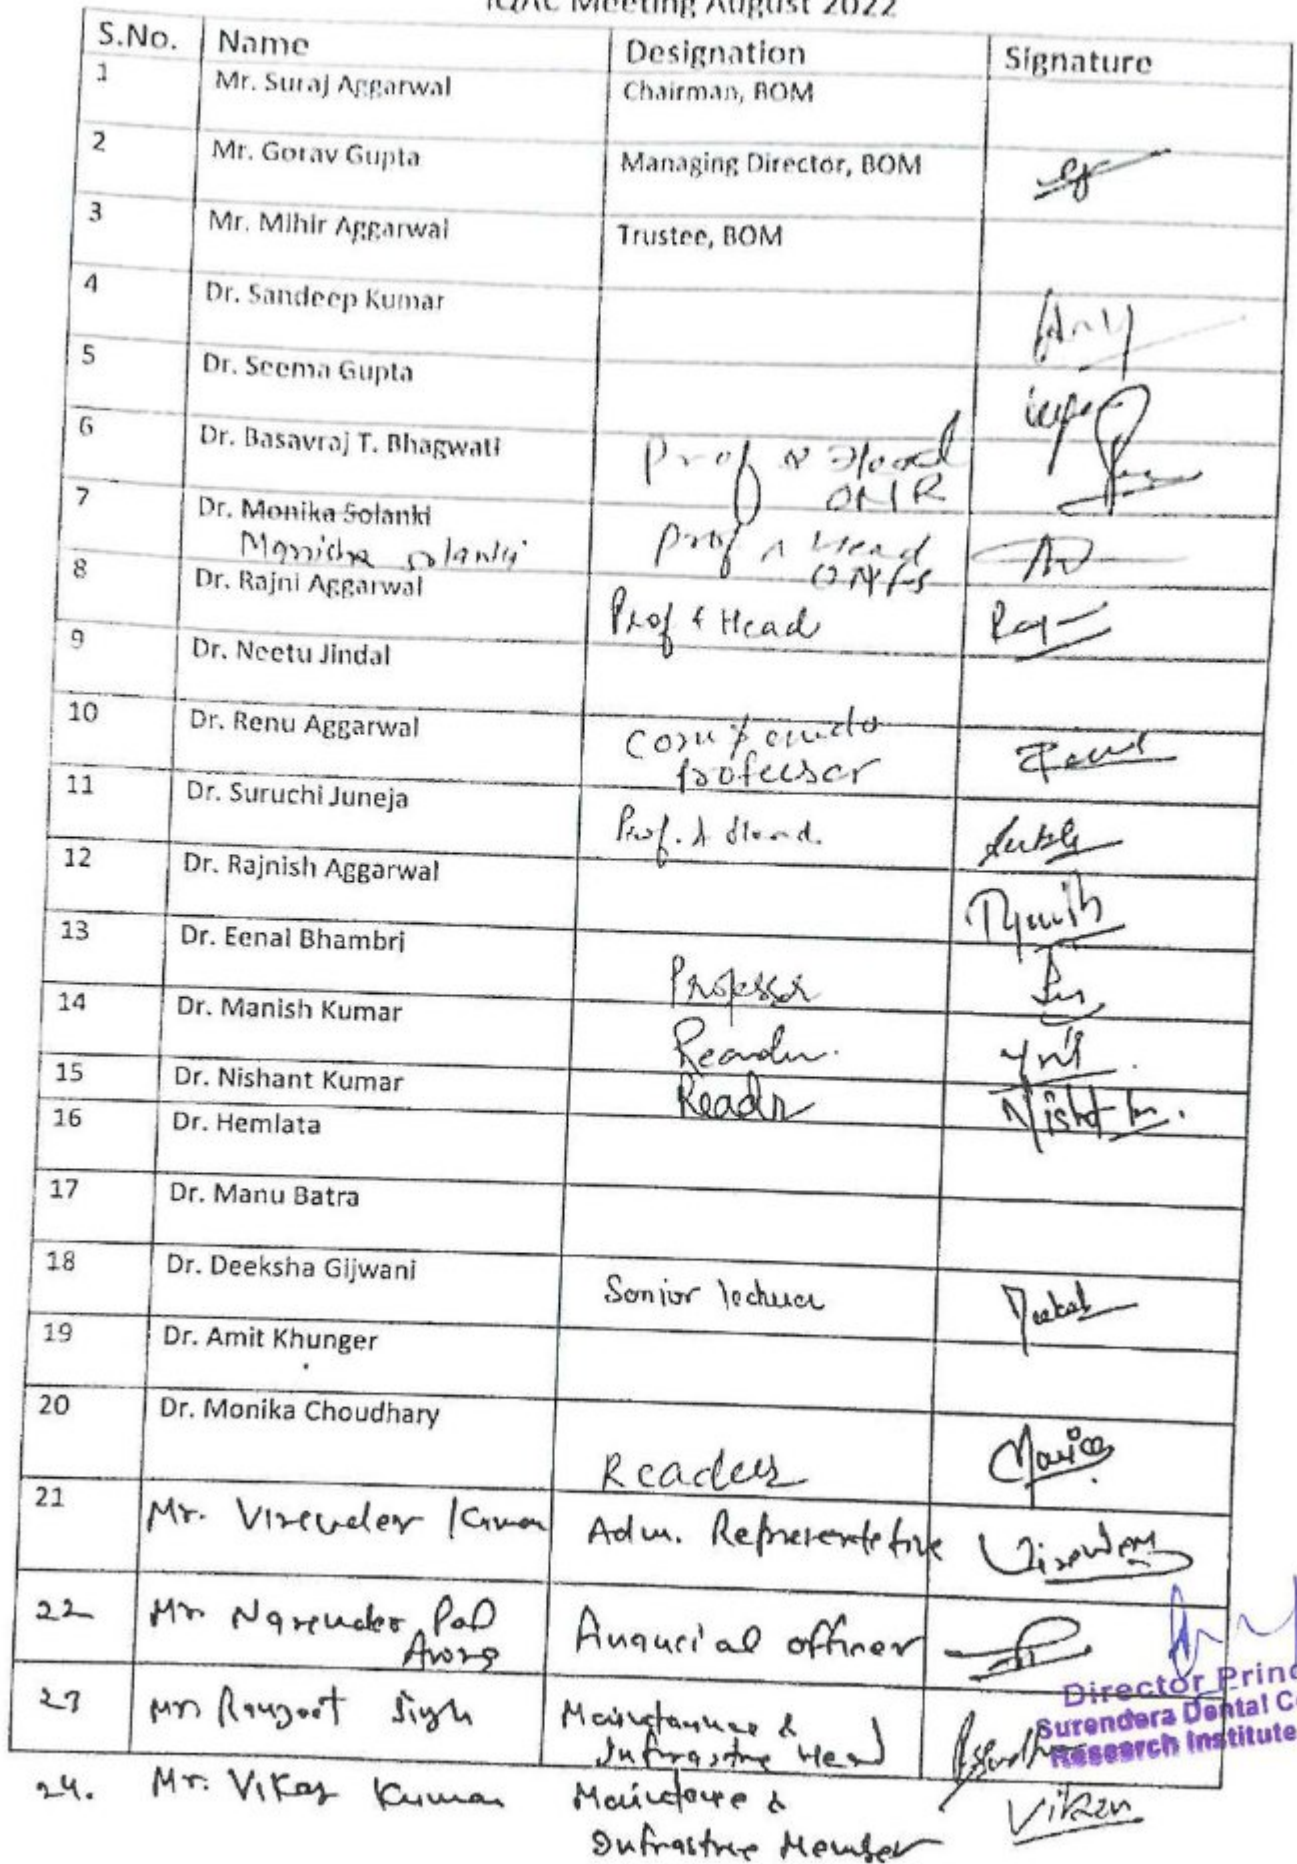 Meeting August 2022
S.No. Name Designation Signature
1 Mr. Suraj Aggarwal Chairman, BOM
2 Mr. Gorav Gupta Managing Director, BOM
3 Mr. Mihir Aggarwal Trustee, BOM
4 Dr. Sandeep Kumar
5 Dr. Seema Gupta
6 Dr. Basavraj T. Bhagwati Prof & Head
OMR
7 Dr. Monika Solanki Prof & Head
Manisha Solanki OMFS
8 Dr. Rajni Aggarwal Prof & Head
9 Dr. Neetu Jindal
10 Dr. Renu Aggarwal
Professor
11 Dr. Suruchi Juneja Prof. & Head.
12 Dr. Rajnish Aggarwal
13 Dr. Eenal Bhambri Professor
14 Dr. Manish Kumar Reader.
15 Dr. Nishant Kumar Reader
16 Dr. Hemlata
17 Dr. Manu Batra
18 Dr. Deeksha Gijwani Senior lecturer
19 Dr. Amit Khunger
20 Dr. Monika Choudhary Reader
21 Mr. Virender Kumar Adm. Representetive Virender
22 Mr Narender Pal officer
Arora
23 Singh Maintanance &
Head
24. Mr. Vikas Kumar Vikas
Member
Director Princ
Surendera Dental Co
Research Institute